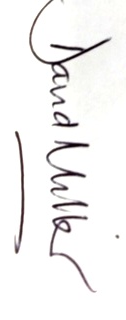 David Miller